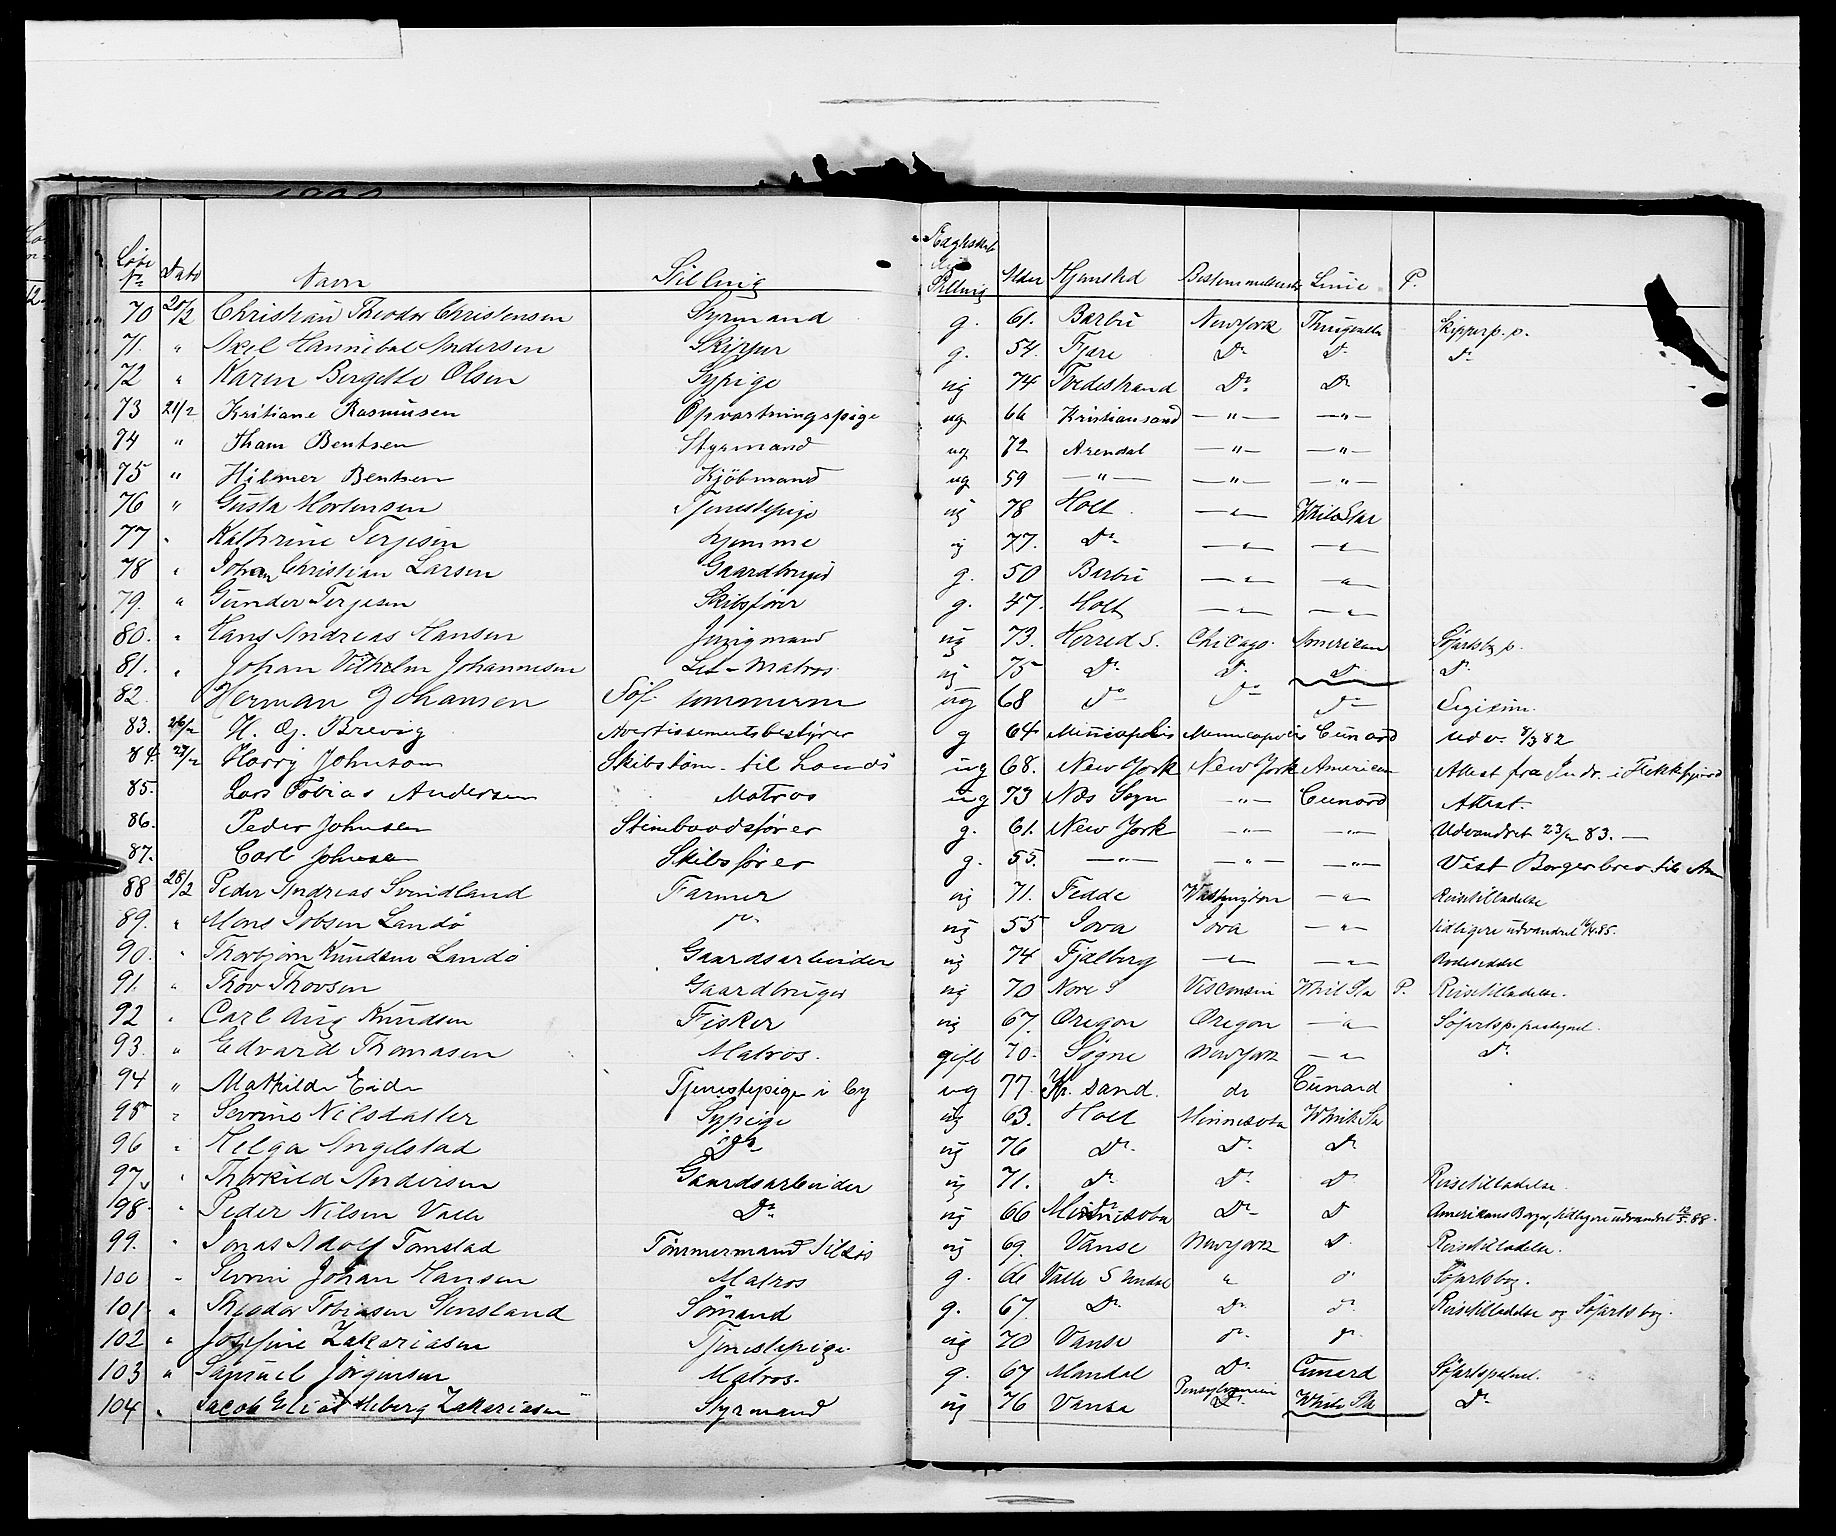 Løbe No Dato Navn Stilling Ægteskab Stilling Alder Hjemsted Bestemmelsessted Linie P.
70 20/2 Christian Theodor Christensen Styrmand g. 61. Barbu New York Thingvalla Skipperp. p.
71. " Axel Hannibal Andersen Skipper g. 54. Fjære Do Do Do
72 " Karen Bergette Olsen Sypige ug 74 Tvedestrand Do Do
73 21/2 Kritiane Rasmusen Opvartningspige ug 66 Kristiansand —"— —"—
74 " Tham Bentsen Styrmand ug 72 Arendal —"— —"—
75 " Hilmer Bentsen Kjöbmand ug 59 —"— —"— —"—
76 " Gusta Mortensen Tjenestepige ug 78 Holt —"— White Star
77 " Kathrine Terjesen hjemme ug 77. Do —"— —"—
78 " Johan Christian Larsen Gaardbruger g. 50 Barbu —"— —"—
79. " Gunder Terjesen Skibsfører g. 47. Holt —"— —"—
80. " Hans Andreas Hansen ug 73. Herred S. Chicago. American Søfartsb. p.
81. " Johan Vilhelm Johannesen Let-Matros ug 75 Do Do Do Do
82. Herman Johansen Söf. tømmerm ug 68 Do Do Do Legitim.
83. 26/2 H. G. Brevig Avertissementsbestyrer g 64 Minneapolis Minneapolis Cunard Udv. 8/3 82
84. 27/2 Harry Johnson Skibstøm. til Lands ug 68. New York New York American Attest fra Indr. i Flekkefjord
85. Lars Tobias Andersen Matros ug 73 Næs Sogn —"— Cunard Attest.
86. Peder Johnsen Stimbaadsfører g. 61. New York —"— —"— Udvandret 83. —
87. Carl Johnsen Skibsfører g. 55. —"— —"— —"— Vist Borgerbrev fra Am
88 28/2 Peder Andreas Svindland Farmer ug 71. Fedde Washington —"— Reisetilladelse
89. " Mons Jobsen Landö Do ug 55 Iova Iova —"— tidligere udvandret 16/4 85.
90. " Thorbjørn Knudsen Landö Gaardsarbeider ug 74 Fjotland —"— —"— Rodeseddel
91. " Thov Thovsen Gaardbruger ug 70 Nore S Visconsin White Sta P. Reisetilladelse.
92 " Carl Aug Knudsen Fisker ug 67. Oregon Oregon —"— Søfartsp. paategnet.
93. " Edvard Thomasen Matros. gift 70. Søgne New York —"— Do
94 " Mathilde Eide Tjenestepige i By ug 77. Kr. sand. do Cunard
95 " Sevrine Nilsdatter Sypige ug 63. Holt Minnesota White Sta
96 " Helga Angelstad Do ug 76 Do Do Do
97 " Thorkild Andersen Gaardsarbeider ug 71. Do Do Do Reisetilladelse.
98. " Peder Nilsen Valle Do ug 66 Minnesota Do Do Amerikans Borger, tidligere udvandret 88.
99. " Jonas Adolf Tomstad Tømmermand tilsøs ug 69. Vanse New York Do Reisetilladelse.
100 " Sevrin Johan Hansen Matros g. 66 Valle S Undal " Do Søfartsbog.
101. " Theodor Tobiasen Stensland Sømand g. 67. Do Do Do Reisetilladelse og Søfartsbog.
102 " Josefine Zakariasen Tjenestepige. ug 70 Vanse Do Do
103 " Samuel Jørgensen Matros. g. 67 Mandal Do Cunard
104 " Jacob Elias Meberg Zakariasen Styrmand ug 76 Vanse Pensylvanien Do White Sta Do